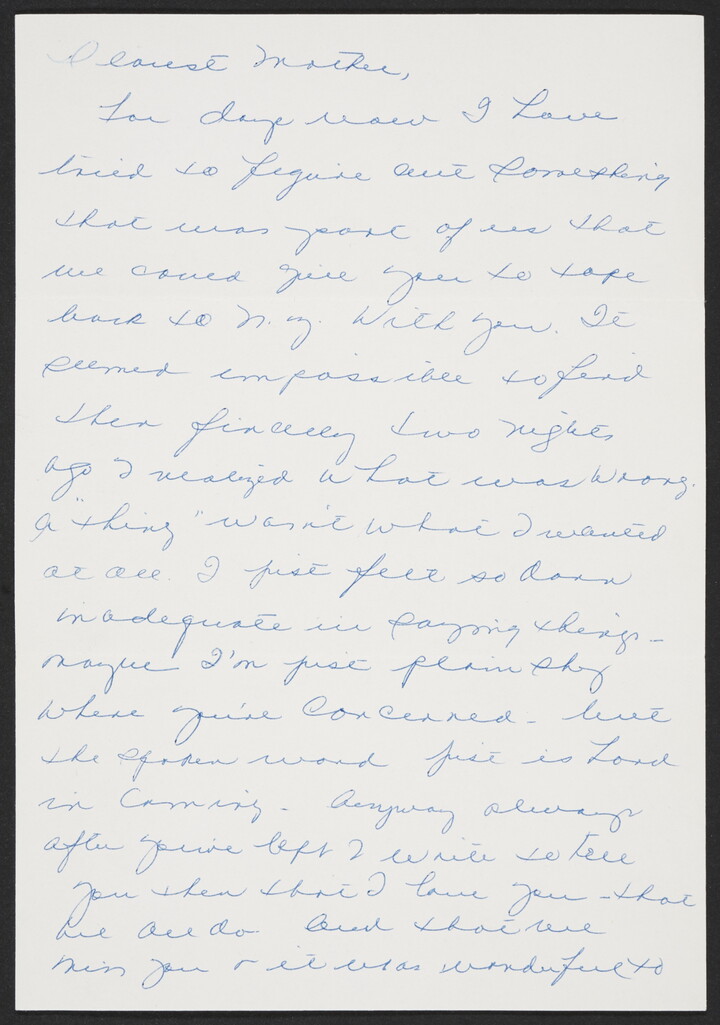 Dearest Mother,
For days now I have
tried to figure out something
that was part of us that
we could give you to take
back to N.Y. With you. It
seemed impossible to find
then finally two nights
ago I realized what was wrong.
A "thing" wasn't what I wanted
at all. I just felt so darn
inadequate in saying things -
maybe I'm just plain shy
where you're concerned - but
the spoken word just is hard
in coming - Anyway always
after you've left I write to tell
you then that I love you - that
we all do - And that we
miss you & it was wonderful to